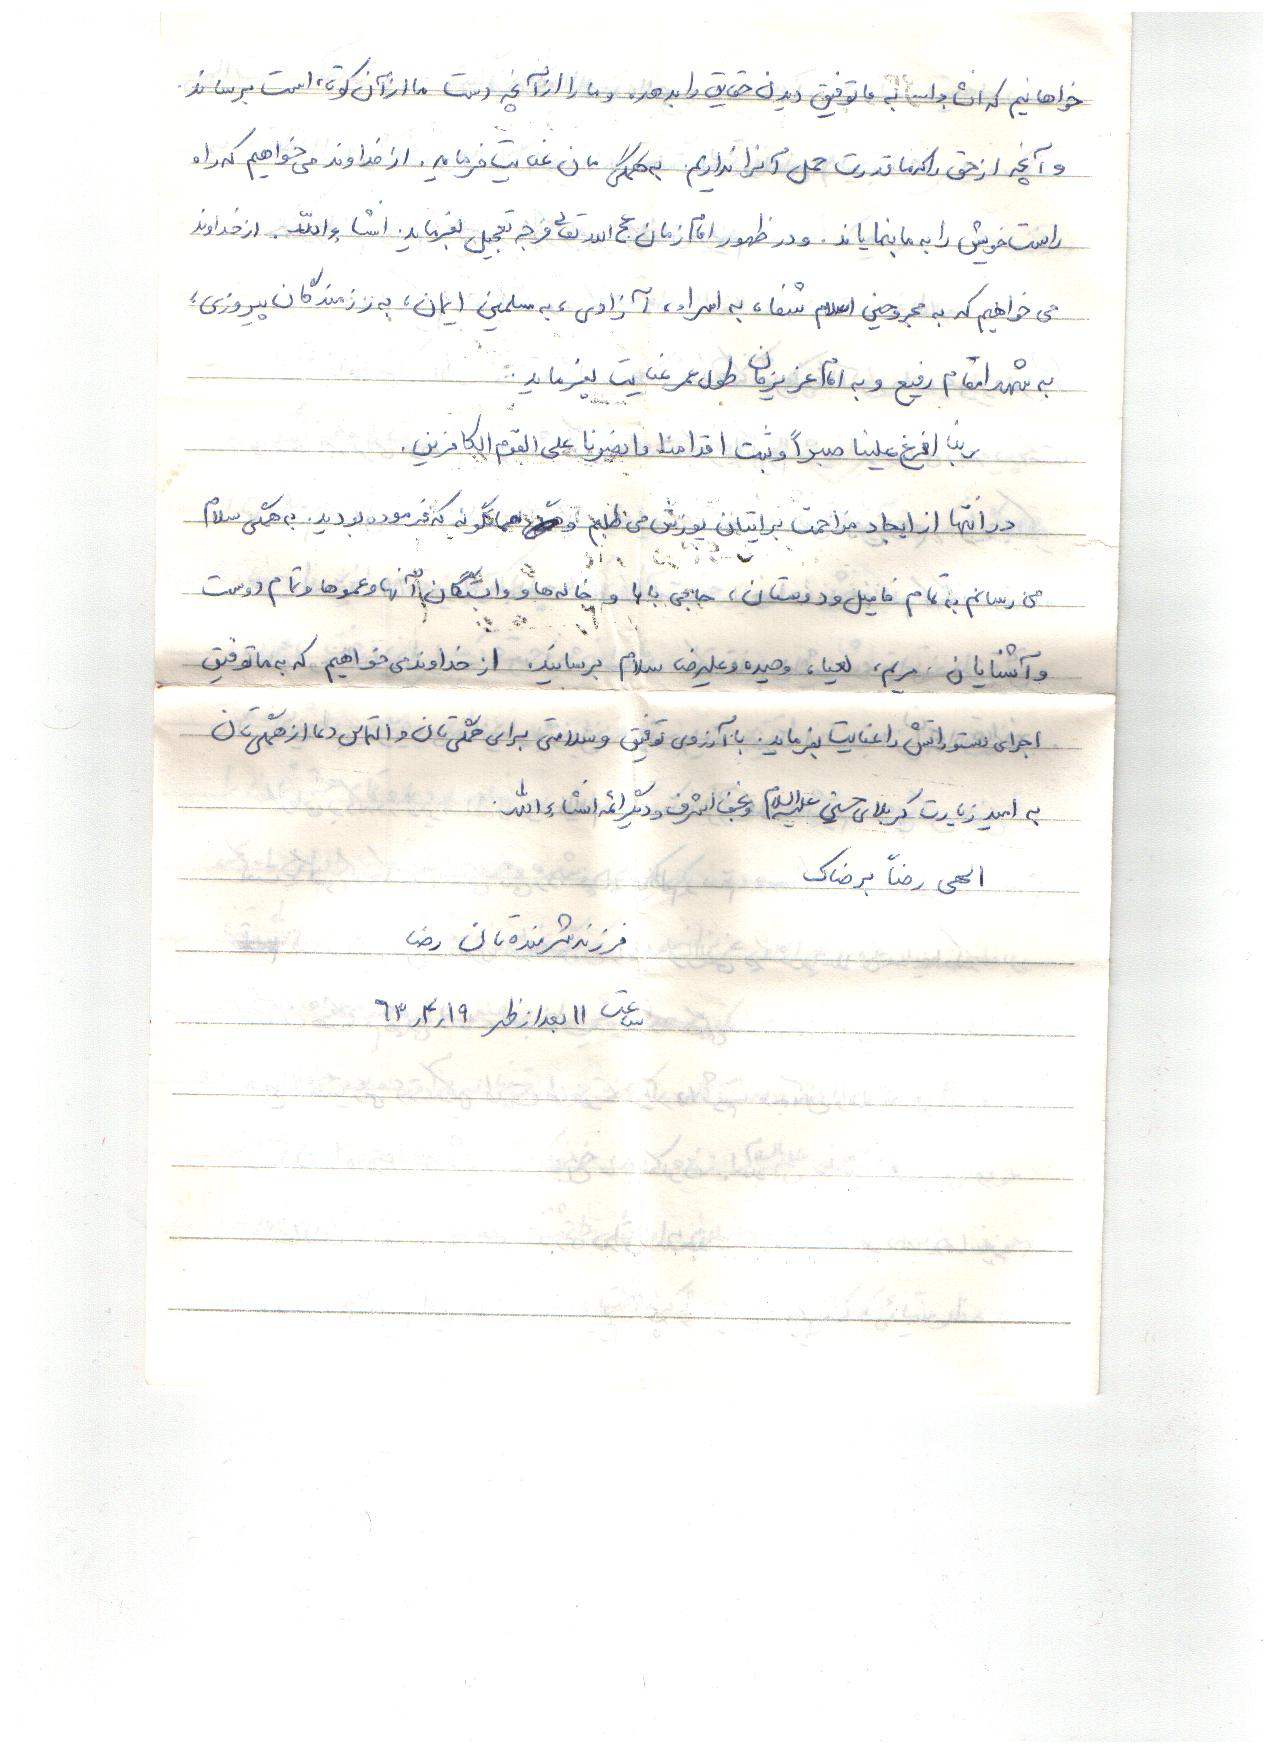 خواهانیم که انشاءالله به ما توفیق دیدن حقایق را بدهد و ما را از آنچه دست ما از آن کوتاه است برساند.
و آنچه از حق را که ما قدرت حمل آنرا نداریم به همگی مان عنایت فرماید. از خداوند می خواهیم که راه
راست خویش را به ما بنمایاند. و در ظهور امام زمان عج الله تعالی فرجه تعجیل بفرماید. انشاءالله. از خداوند
می خواهیم که به مجروحین اسلام شفاء، به اسراء، آزادی، به مسلمین ایمان، به رزمندگان پیروزی،
به شهدا مقام رفیع و به امام عزیزمان طول عمر عنایت بفرماید.
ربنا افرغ علینا صبراً و ثبت اقدامنا وانصرنا علی القوم الکافرین.
در انتها از ایجاد مزاحمت برایتان پوزش می طلبم و همانگونه که فرموده بودید. به همگی سلام
می رسانم به تمام فامیل و دوستان، حاجی بابا و خاله ها و وابستگان آنها و عموها و تمام دوست
و آشنایان. مریم، لعیا، وحیده و علیرضا سلام برسانید. از خداوند می خواهیم که به ما توفیق
اجرای دستوراتش را عنایت بفرماید. با آرزوی توفیق و سلامتی برای همگی تان و التماس دعا از همگی تان
به امید زیارت کربلای حسینی علیه السلام و نجف اشرف و دیگر ائمه انشاءالله.
الهی رضاً برضاک
فرزند شرمنده تان رضا
ساعت ۱۱ بعد از ظهر ۶۳٫۴٫۱۹